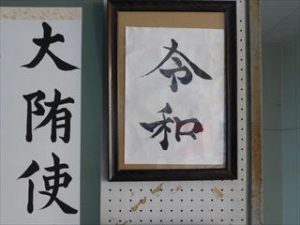 大陏使
令和